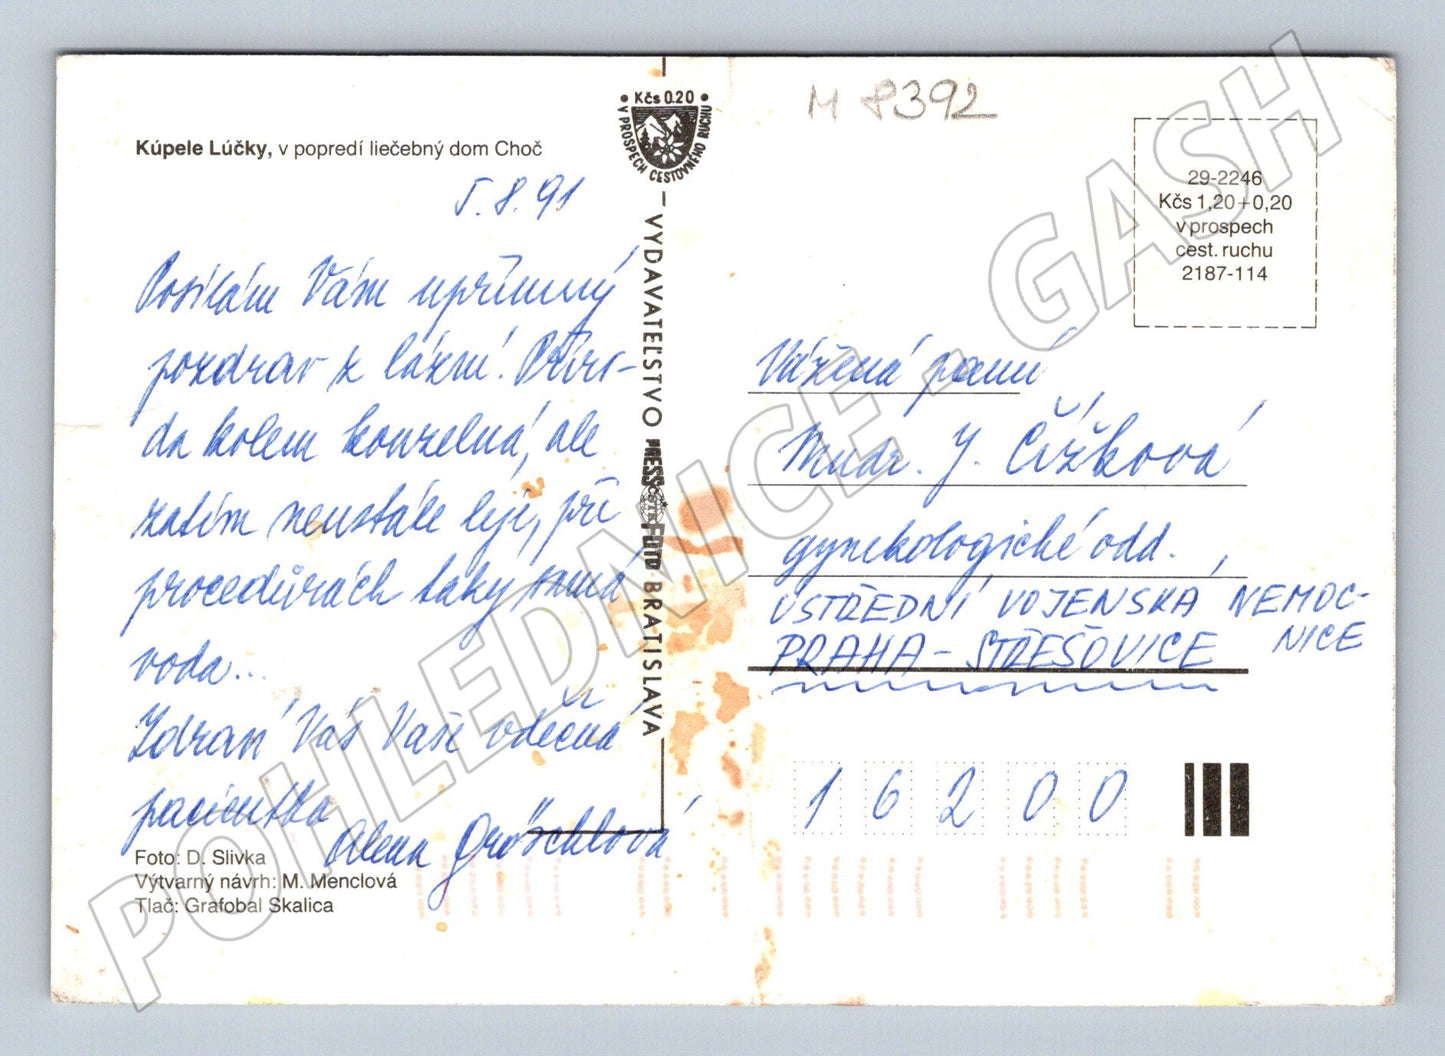 M 8392
Kčs 0.20
V PROSPECH CESTOVNÉHO RUCHU
Kúpele Lúčky, v popredí liečebný dom Choč
5. 8. 91
Posílám Vám upřímný
pozdrav z lázní. Příro-
da kolem kouzelná, ale
zatím neustále lije, při
procedurách taky samá
voda...
Zdraví Vás Vaše vděčná
pacientka
Alena Gröschlová
Foto: D. Slivka
Výtvarný návrh: M. Menclová
Tlač: Grafobal Skalica
VYDAVATEĽSTVO PRESSFOTO BRATISLAVA
ČSTK
29-2246
Kčs 1,20+0,20
v prospech
cest. ruchu
2187-114
Vážená paní
Mudr. J. Čížková
gynekologické odd.,
ÚSTŘEDNÍ VOJENSKÁ NEMOC-
NICE
PRAHA-STŘEŠOVICE
16200
POHLEDNICE - GASH